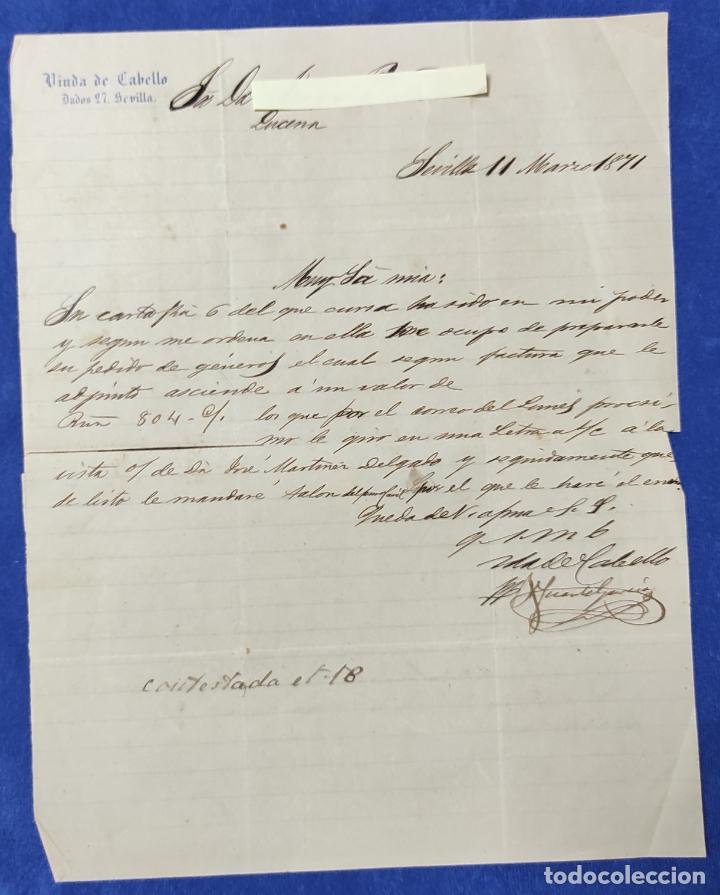 Viuda de Cabello
Dados 27. Sevilla.
Sra Da
Lucena
Sevilla 11 Marzo 1871
Muy Sra mia:
Su carta fha 6 del que cursa ha sido en mi poder
y segun me ordena en ella me ocupo de prepararle
su pedido de géneros el cual segun factura que le
adjunto asciende á un valor de
Rvn 804 - C/. los que por el correo del Lunes procsi-
mo le giro en una Letra a m/c á la
vista o/ de Dn José Martinez Delgado y seguidamente que-
de listo le mandaré talon del por el que le haré el
Queda de V. afma S. S.
q. s. m. b
Vda de Cabello
contestada el 18
todocoleccion